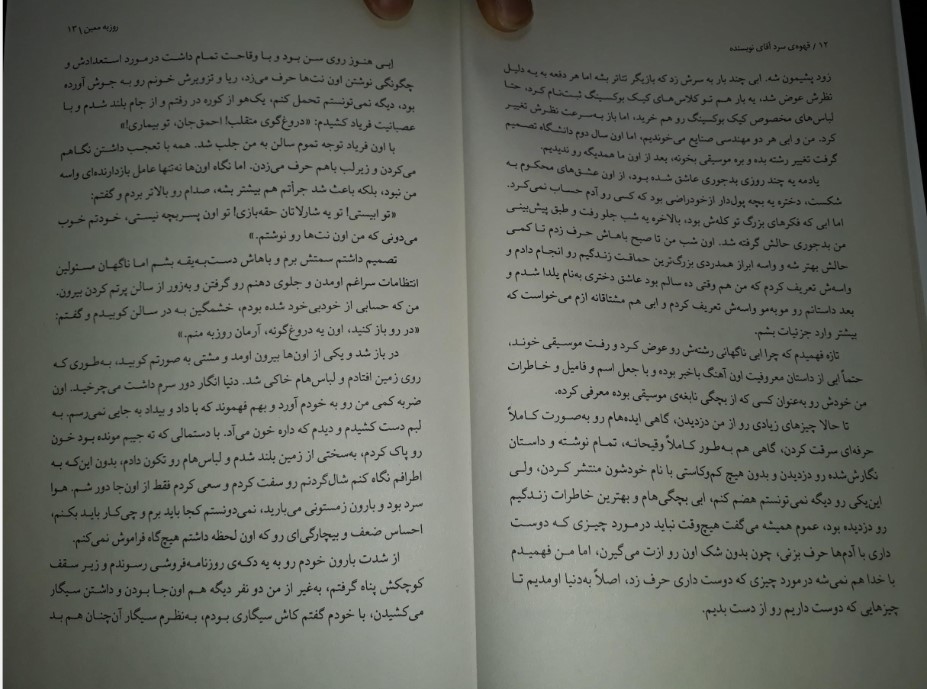 ۱۲ / قهوه‌ی سرد آقای نویسنده
زود پشیمون شه. ابی چند بار به سرش زد که بازیگر تئاتر بشه اما هر دفعه به یه دلیل
نظرش عوض شد، یه بار هم تو کلاس‌های کیک بوکسینگ ثبت‌نام کرد، حتا
لباس‌های مخصوص کیک بوکسینگ رو هم خرید، اما باز به‌سرعت نظرش تغییر
کرد. من و ابی هر دو مهندسی صنایع می‌خوندیم، اما اون سال دوم دانشگاه تصمیم
گرفت تغییر رشته بده و بره موسیقی بخونه، بعد از اون ما همدیگه رو ندیدیم.
یادمه یه چند روزی بدجوری عاشق شده بود، از اون عشق‌های محکوم به
شکست، دختره یه بچه پول‌دار ازخودراضی بود که کسی رو آدم حساب نمی‌کرد.
اما ابی که فکرهای بزرگ تو کله‌ش بود، بالاخره یه شب جلو رفت و طبق پیش‌بینی
من بدجوری حالش گرفته شد. اون شب من تا صبح باهاش حرف زدم تا کمی
حالش بهتر شه و واسه ابراز همدردی بزرگ‌ترین حماقت زندگیم رو انجام دادم و
واسه‌ش تعریف کردم که من هم وقتی ده سالم بود عاشق دختری به‌نام یلدا شدم و
بعد داستانم رو موبه‌مو واسه‌ش تعریف کردم و ابی هم مشتاقانه ازم می‌خواست که
بیشتر وارد جزئیات بشم.
تازه فهمیدم که چرا ابی ناگهانی رشته‌ش رو عوض کرد و رفت موسیقی خوند،
حتماً ابی از داستان معروفیت اون آهنگ باخبر بوده و با جعل اسم و فامیل و خاطرات
من خودش رو به‌عنوان کسی که از بچگی نابغه‌ی موسیقی بوده معرفی کرده.
تا حالا چیزهای زیادی رو از من دزدیدن، گاهی ایده‌هام رو به‌صورت کاملاً
حرفه‌ای سرقت کردن، گاهی هم به‌طور کاملاً وقیحانه، تمام نوشته و داستان
نگارش‌شده رو دزدیدن و بدون هیچ کم‌وکاستی با نام خودشون منتشر کردن، ولی
این‌یکی رو دیگه نمی‌تونستم هضم کنم، ابی بچگی‌هام و بهترین خاطرات زندگیم
رو دزدیده بود، عموم همیشه می‌گفت هیچ‌وقت نباید درمورد چیزی که دوست
داری با آدم‌ها حرف بزنی، چون بدون شک اون رو ازت می‌گیرن، اما من فهمیدم
با خدا هم نمی‌شه درمورد چیزی که دوست داری حرف زد، اصلاً به‌دنیا اومدیم تا
چیزهایی که دوست داریم رو از دست بدیم.
روزبه معین / ۱۳
ابی هنوز روی سن بود و با وقاحت تمام داشت درمورد استعدادش و
چگونگی نوشتن اون نت‌ها حرف می‌زد، ریا و تزویرش خونم رو به جوش آورده
بود، دیگه نمی‌تونستم تحمل کنم، یک‌هو از کوره در رفتم و از جام بلند شدم و با
عصبانیت فریاد کشیدم: «دروغ‌گوی متقلب! احمق‌جان، تو بیماری!»
با اون فریاد توجه تموم سالن به من جلب شد. همه با تعجب داشتن نگاهم
می‌کردن و زیرلب باهم حرف می‌زدن. اما نگاه اون‌ها نه‌تنها عامل بازدارنده‌ای واسه
من نبود، بلکه باعث شد جرأتم هم بیشتر بشه، صدام رو بالاتر بردم و گفتم:
«تو ابیستی! تو یه شارلاتان حقه‌بازی! تو اون پسربچه نیستی، خودتم خوب
می‌دونی که من اون نت‌ها رو نوشتم.»
تصمیم داشتم سمتش برم و باهاش دست‌به‌یقه بشم اما ناگهان مسئولین
انتظامات سراغم اومدن و جلوی دهنم رو گرفتن و به‌زور از سالن پرتم کردن بیرون.
من که حسابی از خودبی‌خود شده بودم، خشمگین به در سالن کوبیدم و گفتم:
«در رو باز کنید، اون یه دروغ‌گوئه، آرمان روزبه منم.»
در باز شد و یکی از اون‌ها بیرون اومد و مشتی به صورتم کوبید، به‌طوری که
روی زمین افتادم و لباس‌هام خاکی شد. دنیا انگار دور سرم داشت می‌چرخید. اون
ضربه کمی من رو به خودم آورد و بهم فهموند که با داد و بیداد به جایی نمی‌رسم. به
لبم دست کشیدم و دیدم که داره خون می‌آد. با دستمالی که ته جیبم مونده بود خون
رو پاک کردم، به‌سختی از زمین بلند شدم و لباس‌هام رو تکون دادم، بدون این‌که به
اطرافم نگاه کنم شال‌گردنم رو سفت کردم و سعی کردم فقط از اون‌جا دور شم. هوا
سرد بود و بارون زمستونی می‌بارید، نمی‌دونستم کجا باید برم و چی‌کار باید بکنم،
احساس ضعف و بیچارگی‌ای رو که اون لحظه داشتم هیچ‌گاه فراموش نمی‌کنم.
از شدت بارون خودم رو به یه دکه‌ی روزنامه‌فروشی رسوندم و زیر سقف
کوچکش پناه گرفتم، به‌غیر از من دو نفر دیگه هم اون‌جا بودن و داشتن سیگار
می‌کشیدن، با خودم گفتم کاش سیگاری بودم، به‌نظرم سیگار آن‌چنان هم بد